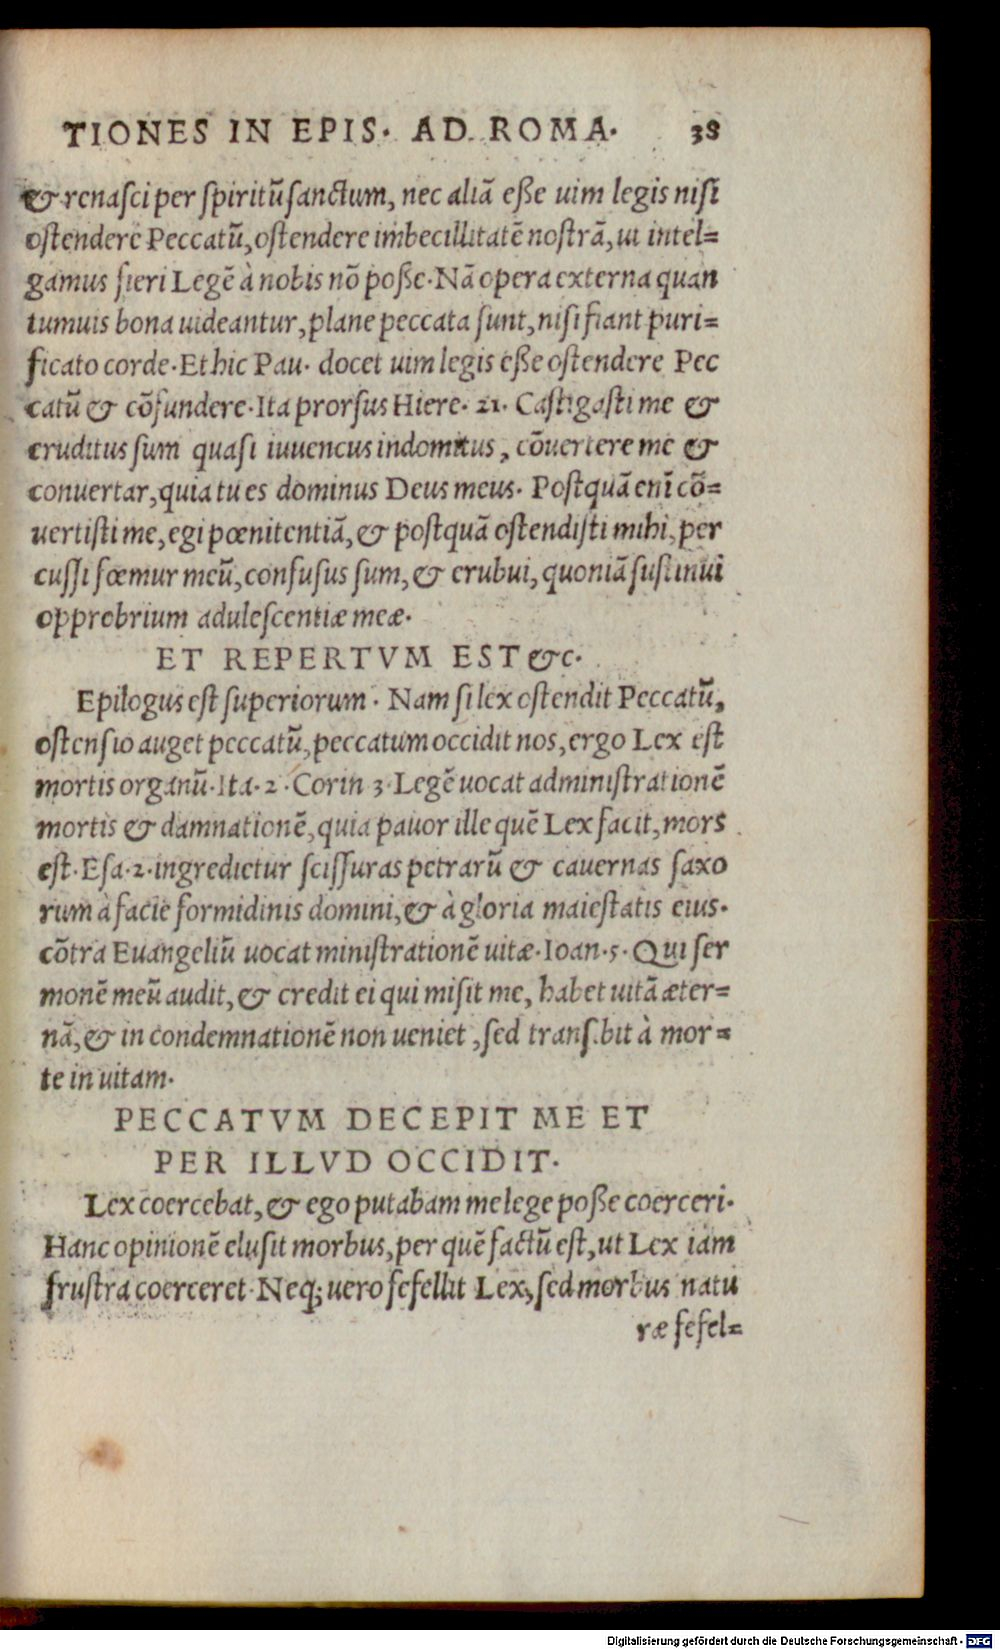 TIONES IN EPIS. AD ROMA. 38
& renaſci per ſpiritū ſanctum, nec aliā eſſe uim legis niſi
oſtendere Peccatū, oſtendere imbecillitatē noſtrā, ut intel=
gamus fieri Legē à nobis nō poſſe. Nā opera externa quan
tumuis bona uideantur, plane peccata ſunt, niſi fiant puri=
ficato corde. Et hic Pau. docet uim legis eſſe oſtendere Pec
catū & cōfundere. Ita prorſus Hiere. 21. Caſtigaſti me &
eruditus ſum quaſi iuuencus indomitus, cōuertere me &
conuertar, quia tu es dominus Deus meus. Poſtquā enī cō=
uertiſti me, egi pœnitentiā, & poſtquā oſtendiſti mihi, per
cuſſi fœmur meū, confuſus ſum, & erubui, quoniā ſuſtinui
opprobrium aduleſcentiæ meæ.
ET REPERTVM EST &c.
Epilogus eſt ſuperiorum. Nam ſi lex oſtendit Peccatū,
oſtenſio auget peccatū, peccatum occidit nos, ergo Lex eſt
mortis organū. Ita. 2. Corin 3. Legē uocat adminiſtrationē
mortis & damnationē, quia pauor ille quē Lex facit, mors
eſt. Eſa. 2. ingredietur ſciſſuras petrarū & cauernas ſaxo
rum à facie formidinis domini, & à gloria maieſtatis eius.
cōtra Euangeliū uocat miniſtrationē uitæ. Ioan. 5. Qui ſer
monē meū audit, & credit ei qui miſit me, habet uitā æter=
nā, & in condemnationē non ueniet, ſed tranſibit à mor=
te in uitam.
PECCATVM DECEPIT ME ET
PER ILLVD OCCIDIT.
Lex coercebat, & ego putabam me lege poſſe coerceri.
Hanc opinionē eluſit morbus, per quē factū eſt, ut Lex iam
fruſtra coerceret. Neq; uero fefellit Lex, ſed morbus natu
ræ fefel=
Digitalisierung gefördert durch die Deutsche Forschungsgemeinschaft - DFG